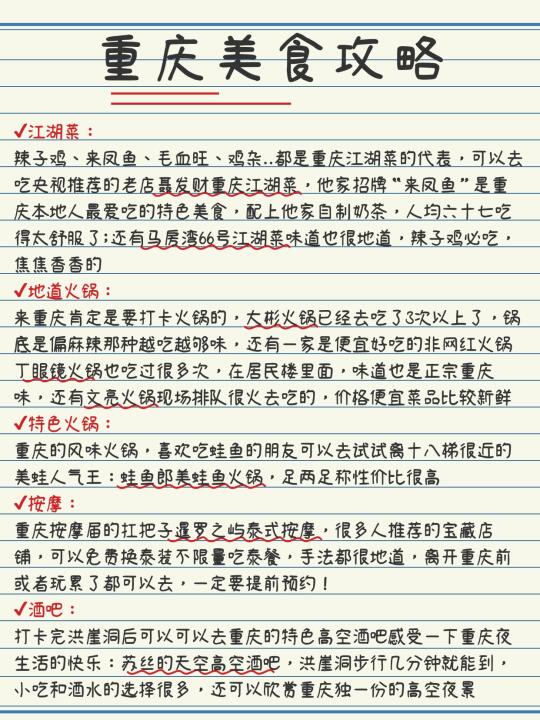 重庆美食攻略
✓江湖菜：
辣子鸡、来凤鱼、毛血旺、鸡杂..都是重庆江湖菜的代表，可以去
吃央视推荐的老店聂发财重庆江湖菜，他家招牌“来凤鱼”是重
庆本地人最爱吃的特色美食，配上他家自制奶茶，人均六十七吃
得太舒服了；还有马房湾66号江湖菜味道也很地道，辣子鸡必吃，
焦焦香香的
✓地道火锅：
来重庆肯定是要打卡火锅的，大彬火锅已经去吃了3次以上了，锅
底是偏麻辣那种越吃越够味，还有一家是便宜好吃的非网红火锅
丁眼镜火锅也吃过很多次，在居民楼里面，味道也是正宗重庆
味，还有文亮火锅现场排队很火去吃的，价格便宜菜品比较新鲜
✓特色火锅：
重庆的风味火锅，喜欢吃蛙鱼的朋友可以去试试离十八梯很近的
美蛙人气王：蛙鱼郎美蛙鱼火锅，足两足称性价比很高
✓按摩：
重庆按摩届的扛把子暹罗之屿泰式按摩，很多人推荐的宝藏店
铺，可以免费换泰装不限量吃泰餐，手法都很地道，离开重庆前
或者玩累了都可以去，一定要提前预约！
✓酒吧：
打卡完洪崖洞后可以可以去重庆的特色高空酒吧感受一下重庆夜
生活的快乐：苏丝的天空高空酒吧，洪崖洞步行几分钟就能到，
小吃和酒水的选择很多，还可以欣赏重庆独一份的高空夜景